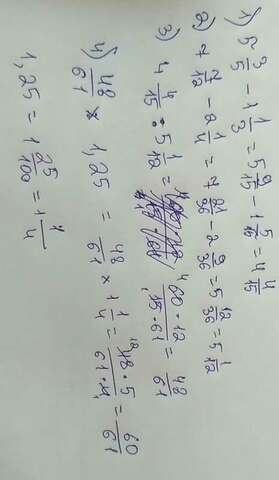 1) 5 3/5 - 1 1/3 = 5 9/15 - 1 5/15 = 4 4/15
2) 7 7/12 - 2 1/4 = 7 21/36 - 2 9/36 = 5 12/36 = 5 1/12
3) 4 4/15 : 5 1/12 = 4 60·12/15·61 = 48/61
4) 48/61 × 1,25 = 48/61 × 1 1/4 = 12 48·5/61·4 = 60/61
1,25 = 1 25/100 = 1 1/4